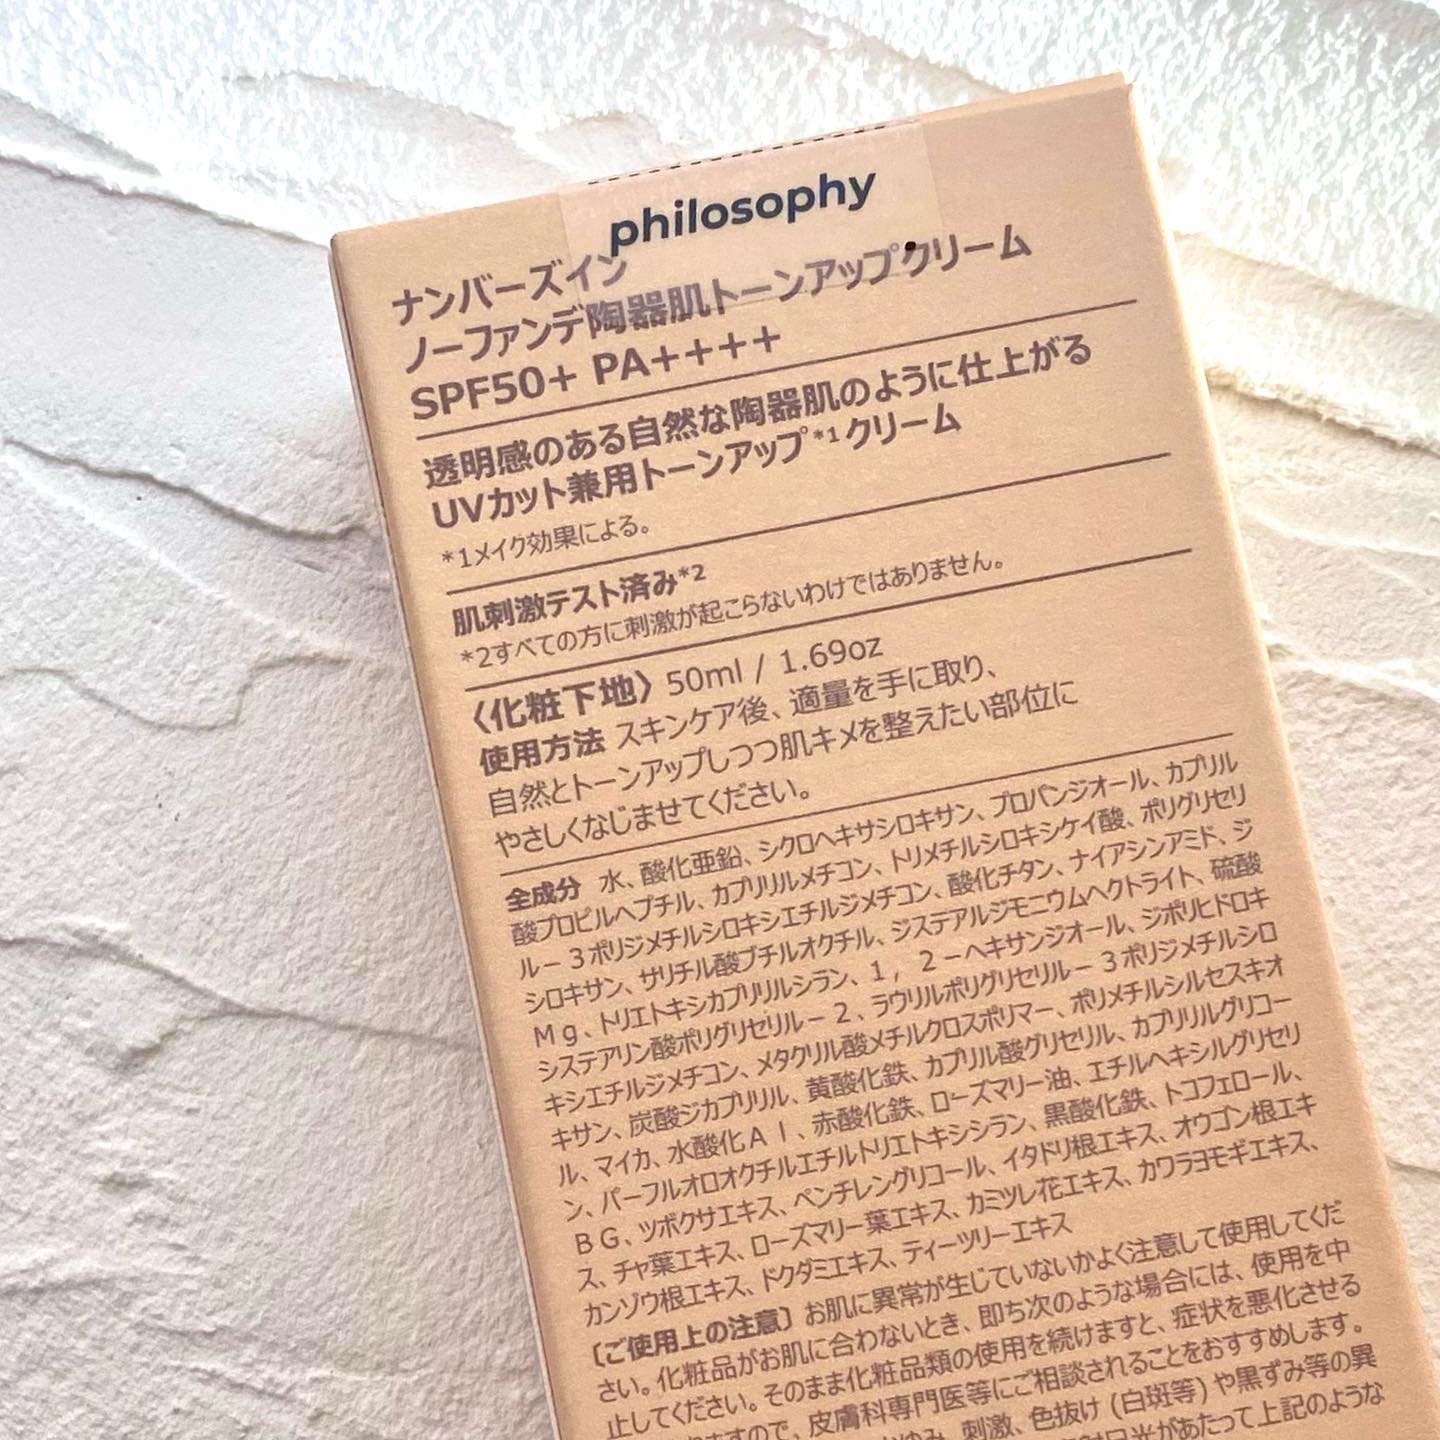 philosophy
ナンバーズイン
ノーファンデ陶器肌トーンアップクリーム
SPF50+ PA++++
透明感のある自然な陶器肌のように仕上がる
UVカット兼用トーンアップ*1クリーム
*1メイク効果による。
肌刺激テスト済み*2
*2すべての方に刺激が起こらないわけではありません。
〈化粧下地〉50ml / 1.69oz
使用方法 スキンケア後、適量を手に取り、
自然とトーンアップしつつ肌キメを整えたい部位に
やさしくなじませてください。
全成分 水、酸化亜鉛、シクロヘキサシロキサン、プロパンジオール、カプリル
酸プロピルヘプチル、カプリリルメチコン、トリメチルシロキシケイ酸、ポリグリセリ
ル－3ポリジメチルシロキシエチルジメチコン、酸化チタン、ナイアシンアミド、ジ
シロキサン、サリチル酸ブチルオクチル、ジステアルジモニウムヘクトライト、硫酸
Mg、トリエトキシカプリリルシラン、1，2－ヘキサンジオール、ジポリヒドロキ
システアリン酸ポリグリセリル－2、ラウリルポリグリセリル－3ポリジメチルシロ
キシエチルジメチコン、メタクリル酸メチルクロスポリマー、ポリメチルシルセスキオ
キサン、炭酸ジカプリリル、黄酸化鉄、カプリル酸グリセリル、カプリリルグリコー
ル、マイカ、水酸化Al、赤酸化鉄、ローズマリー油、エチルヘキシルグリセリ
ン、パーフルオロオクチルエチルトリエトキシシラン、黒酸化鉄、トコフェロール、
BG、ツボクサエキス、ペンチレングリコール、イタドリ根エキス、オウゴン根エキ
ス、チャ葉エキス、ローズマリー葉エキス、カミツレ花エキス、カワラヨモギエキス、
カンゾウ根エキス、ドクダミエキス、ティーツリーエキス
〔ご使用上の注意〕お肌に異常が生じていないかよく注意して使用してくだ
さい。化粧品がお肌に合わないとき、即ち次のような場合には、使用を中
止してください。そのまま化粧品類の使用を続けますと、症状を悪化させる
ますので、皮膚科専門医等にご相談されることをおすすめします。
かゆみ、刺激、色抜け(白斑等)や黒ずみ等の異
日光があたって上記のような